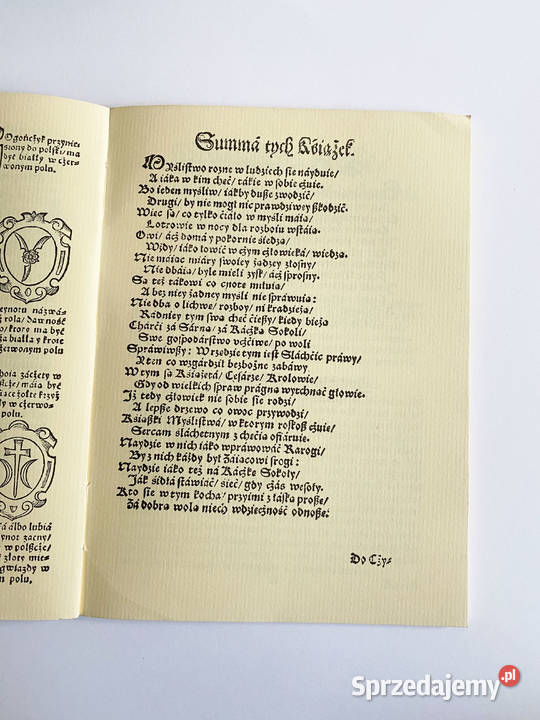 Ogończyk przynie-
siony do polski/ ma
być biały w czer-
wonym polu.
nazwá-
rolá/ Dawność
/ ktore ma być
białá y krote
czerwonym polu
zboia zaczęty w
máia być
żołte krzyż
w czerwo-
polu.
á álbo lubiá
zacny/
w polszcze/
złoty mie-
gwiazdy w
m polu.
Summá tych Kśiążek.
MYślistwo rozne w ludziech sie náyduie/
A iáka w kim chęć/ tákie w sobie czuie.
Bo ieden myśliw/ iákby dusze zwodzić/
Drugi/ by nic mogł nic prawdziwey szkodzić.
Więc są/ co tylko ciáło w myśli máią/
Lotrowie w nocy dla rozboiu wstáią.
Owi/ ácz domá y pokornie siedzą/
Wżdy/ iáko łowić w czym człowieká/ wiedzą.
Nie máiąc miáry swoiey żądzey złosny/
Nie dbáią/ byle mieli zysk/ ácz sprosny.
Są też tákowi co cnotę miłuią/
A bez niey żadney myśli nie spráwuią:
Nie dba o lichwę/ rozboy/ ni krádzieżą/
Rádniey tym swą chęć cieszy/ kiedy bieżą
Chárci zá Sárną/ zá Káczką Sokoli/
Swe gospodárstwo uczciwe/ po woli
Spráwiwszy: W rzędzie tym iest Szláchcic práwy/
N ten co wzgárdził bezbożne zabáwy.
W tym są Kśiążętá/ Cesárze/ Krolowie/
Gdy od wielkich spraw prágną wytchnąć głowie.
Iż tedy człowiek nie sobie sie rodzi/
A lepsze drzewo co owoc przywodzi/
Kśiąszki Myślistwá/ w ktorym roskosz czuie/
Sercám szláchetnym z chęcią ofiáruie.
Naydzie w nich iáko wpráwowáć Rárogi/
By z nich káżdy był Záiącowi srogi:
Naydzie iáko też ná Káczkę Sokoły/
Ják sidłá stáwiáć/ sieć/ gdy czás wesoły.
Kto sie w tym kocha/ przyimi z łáską proszę/
Zá dobrą wolą niech wdzięczność odnoszę:
Do Czy-
Sprzedajemy.pl